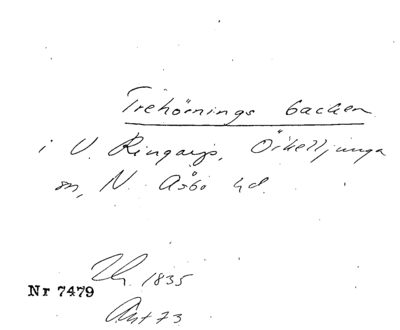 Trehörnings backen
i V. Ringarp, Örkelljunga
sn, N. Åsbo hd.
Th. 1835
Nr 7479
Ant 73